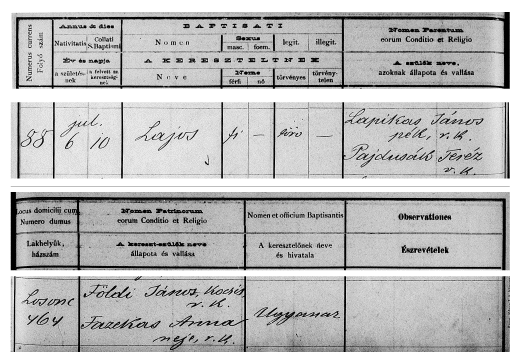 Numerus currens
Folyó szám
Annus & dies
Nativitatis
Collati S. Baptismi
Év és napja
a születés-nek
a felvett sz. keresztség-nek
BAPTISATI
Nomen
Sexus
masc. foem.
legit.
illegit.
A KERESZTELTNEK
Neve
Neme
férfi nő
törvényes
törvény-telen
Nomen Parentum
eorum Conditio et Religio
A szülők neve,
azoknak állapota és vallása
88
jul.
6 10
Lajos
fi —
törv —
Lapikás János
pék, r. k.
Pajdusák Teréz
r. k.
Locus domicilij cum
Numero domus
Lakhelyük,
házszám
Nomen Patrinorum
eorum Conditio et Religio
A kereszt-szülők neve
állapota és vallása
Nomen et officium Baptisantis
A keresztelőnek neve
és hivatala
Observationes
Észrevételek
Losonc
464
Földi János, kocsis
r. k.
Fazekas Anna
neje, r. k.
Ugyanaz